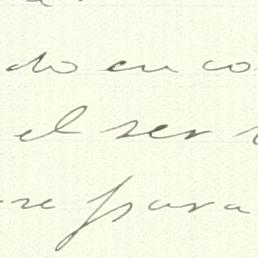 do en co
el ser
se para